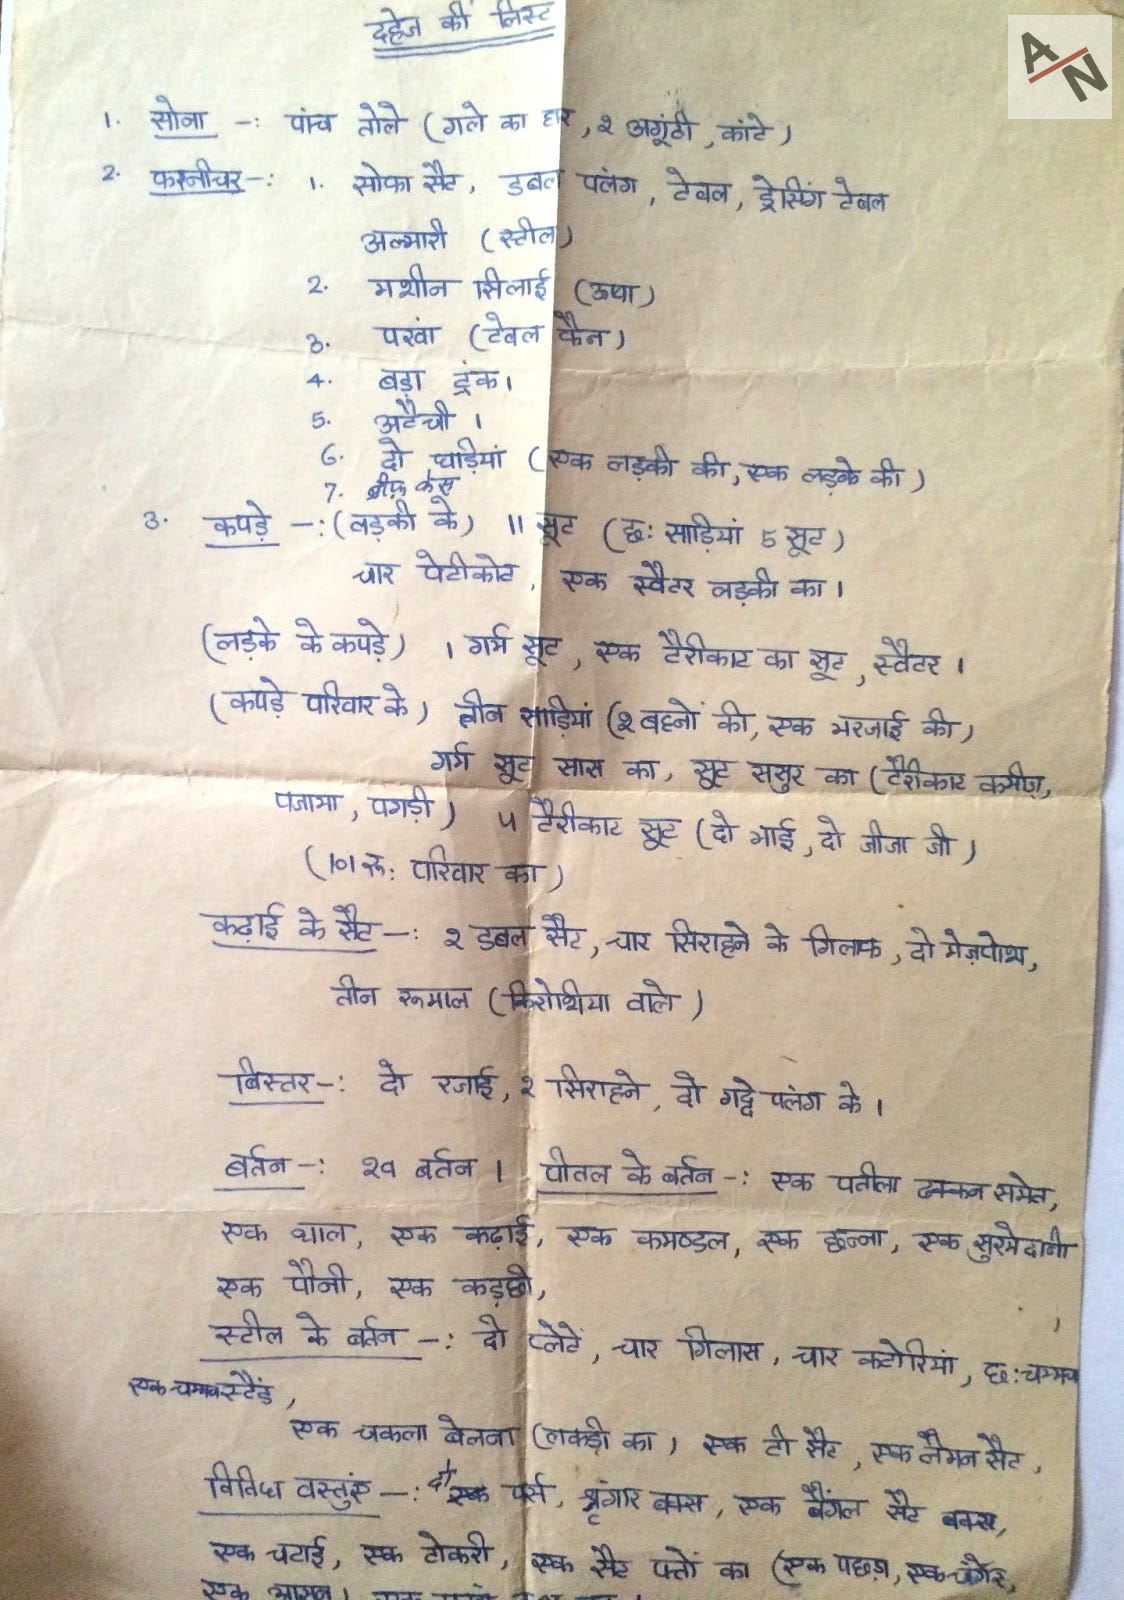 A
N
दहेज की लिस्ट
1. सोना -: पांच तोले (गले का हार, २ अगूंठी, कांटे)
2. फरनीचर -: 1. सोफा सैट, डबल पलंग, टेबल, ड्रेसिंग टेबल
अल्मारी (स्टील)
2. मशीन सिलाई (ऊषा)
3. पखां (टेबल फैन)
4. बड़ा ट्रंक।
5. अटैची ।
6. दो घड़ियां (एक लड़की की, एक लड़के की)
7. ब्रीफ़ केस
3. कपड़े -: (लड़की के) 11 सूट (छ: साड़ियां 5 सूट)
चार पेटीकोट, एक स्वैटर लड़की का।
(लड़के के कपड़े) 1 गर्म सूट, एक टैरीकाट का सूट, स्वैटर।
(कपड़े परिवार के) तीन साड़ियां (२ बहनों की, एक भरजाई की)
गर्म सूट सास का, सूट ससुर का (टैरीकाट कमीज़,
पजामा, पगड़ी) 4 टैरीकाट सूट (दो भाई, दो जीजा जी)
(101 रू: परिवार का)
कढ़ाई के सैट -: २ डबल सैट, चार सिराहने के गिलाफ, दो मेज़पोश,
तीन रूमाल (किरोशिया वाले)
बिस्तर -: दो रजाई, २ सिराहने, दो गद्दे पलंग के।
बर्तन -: बर्तन । पीतल के बर्तन -: एक पतीला ढक्कन समेत,
एक थाल, एक कढ़ाई, एक कमण्डल, एक छन्ना, एक सुरमेदानी
एक पौनी, एक कड़छी,
स्टील के बर्तन -: दो प्लेटें, चार गिलास, चार कटोरियां, छ: चम्मच
एक चम्मच स्टैंड,
एक चकला बेलना (लकड़ी का) एक टी सैट, एक लैमन सैट,
विविध वस्तुएं -: दो पर्स, श्रृंगार बक्स, एक बैंगल सैट बक्स,
एक चटाई, एक टोकरी, एक सैट पत्तों का (एक पछड़, एक चंगेर,
एक आसन।